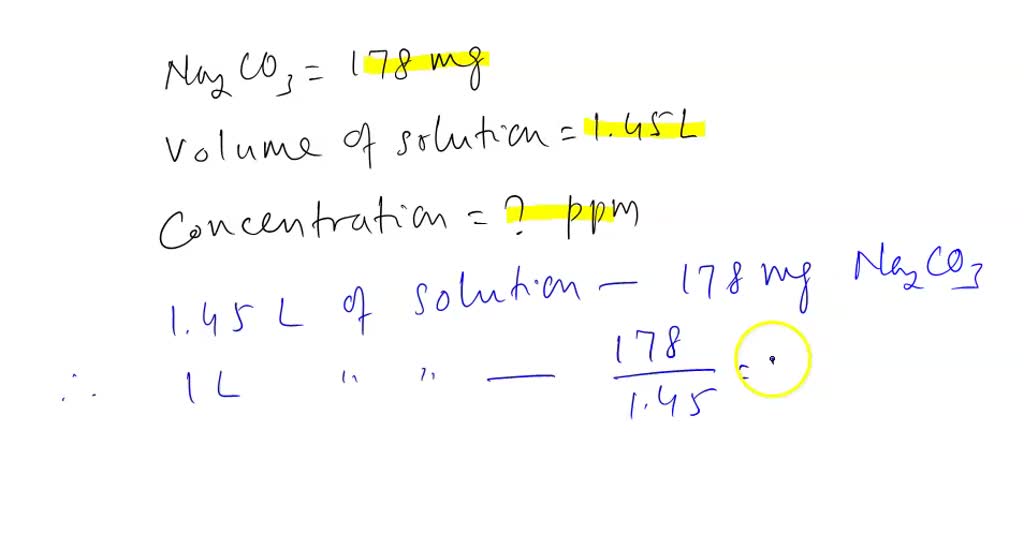 Na₂CO₃ = 178 mg
Volume of solution = 1.45 L
Concentration = ? ppm
1.45 L of solution — 178 mg Na₂CO₃
∴ 1 L " " — 178/1.45 =